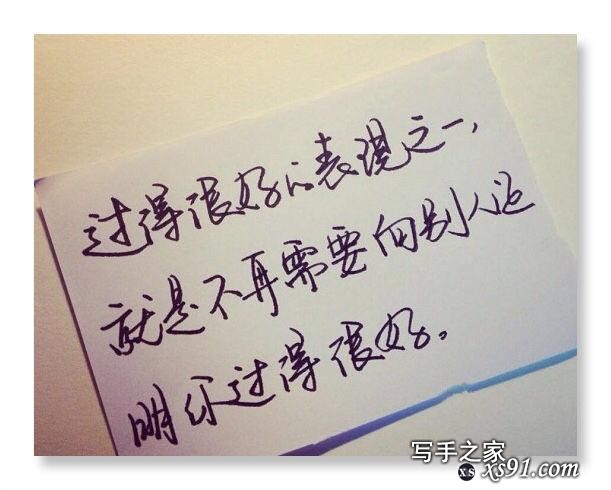 过得很好的表现之一，
就是不再需要向别人证
明你过得很好。
写手之家
xs xs91.com